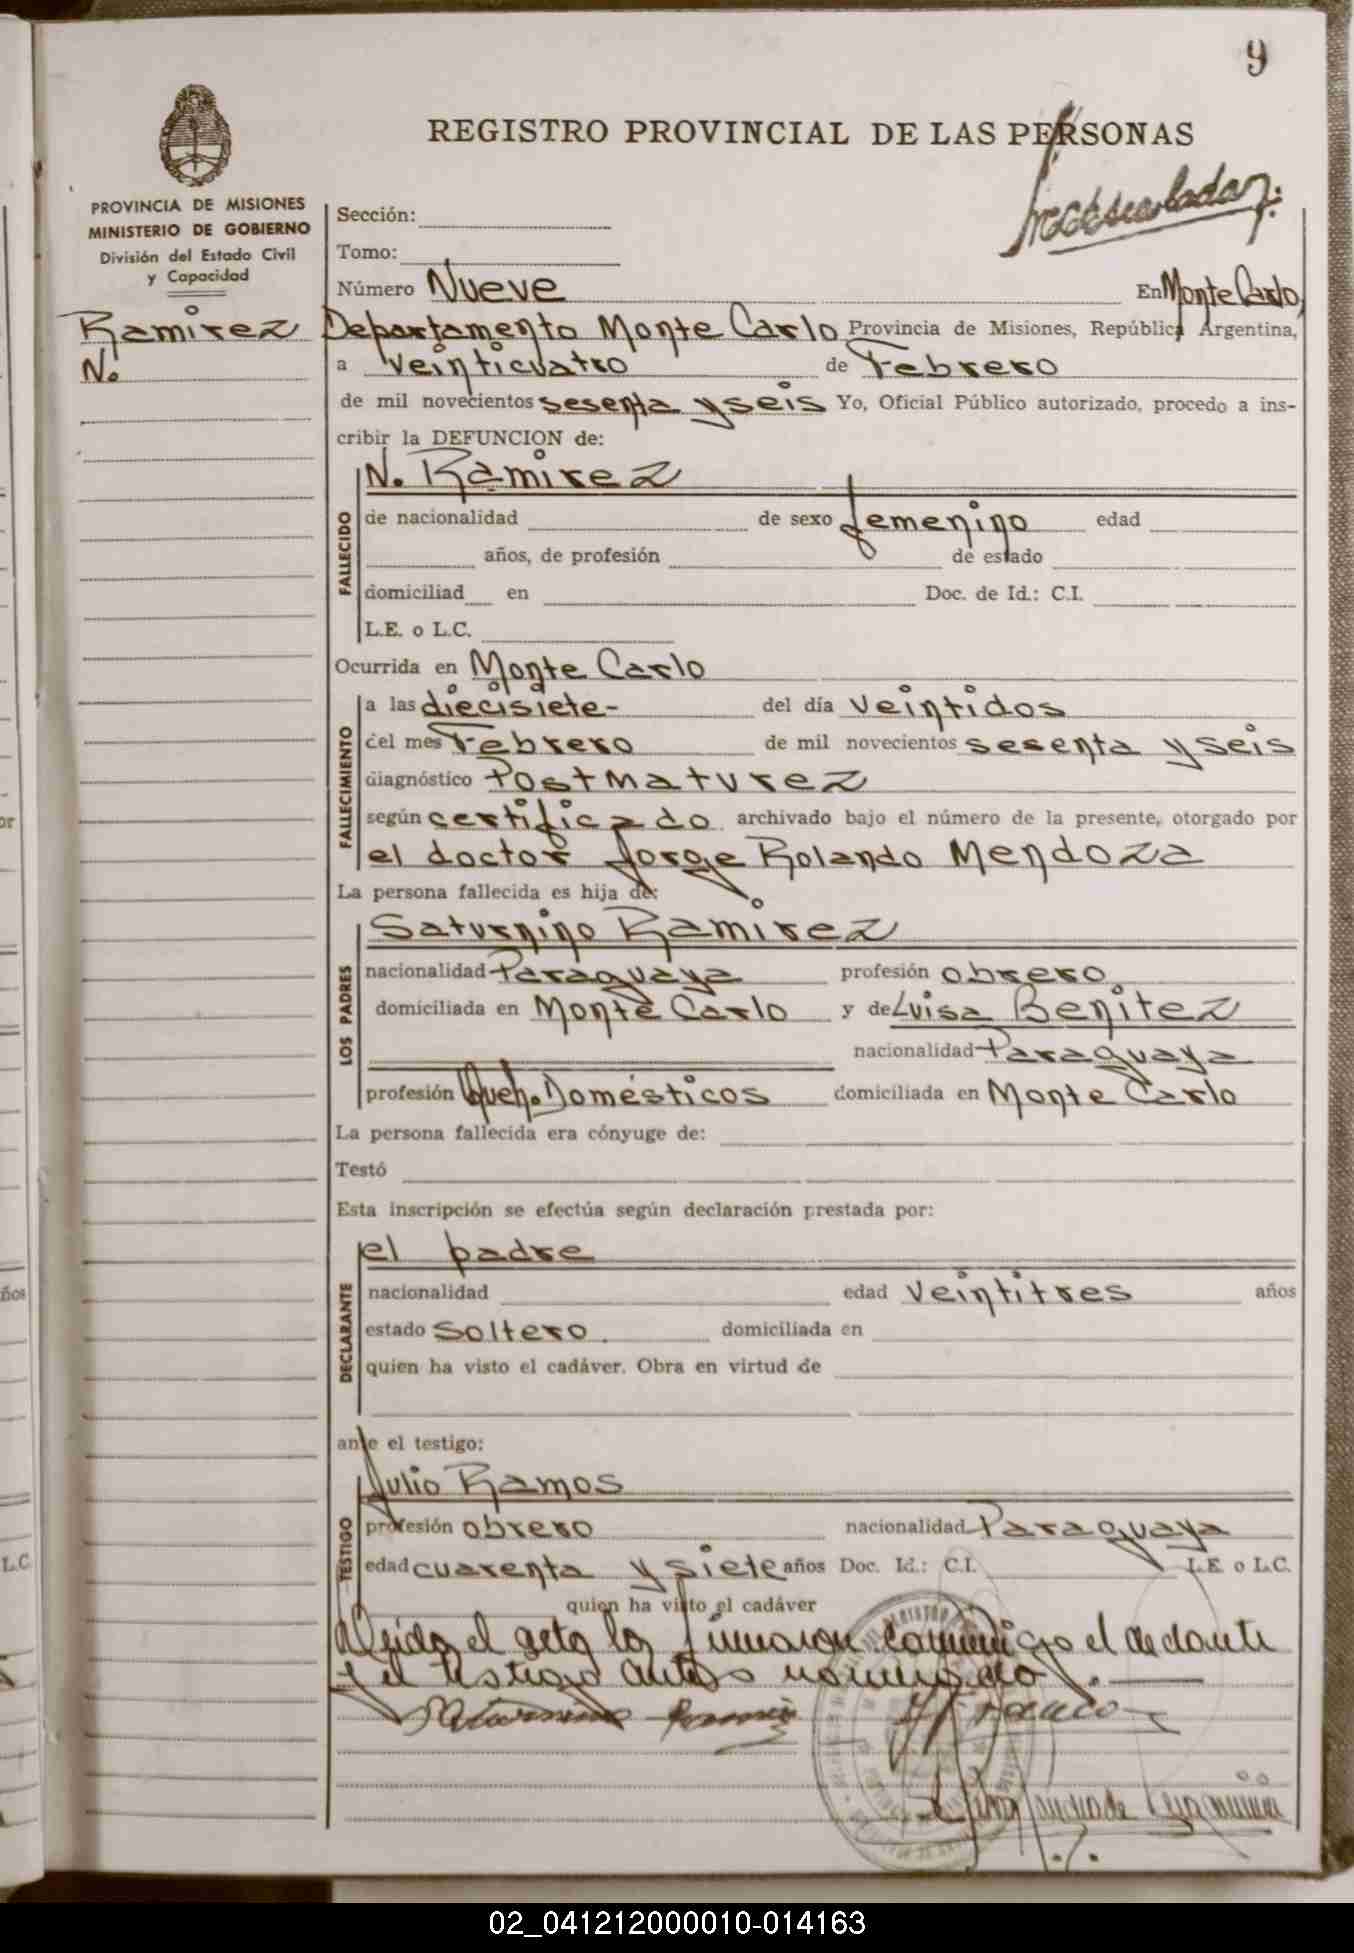 9
REGISTRO PROVINCIAL DE LAS PERSONAS
PROVINCIA DE MISIONES
MINISTERIO DE GOBIERNO
División del Estado Civil
y Capacidad
Ramirez
N.
Sección:
Tomo:
Número Nueve En Monte Carlo,
Departamento Monte Carlo Provincia de Misiones, República Argentina,
a veinticuatro de Febrero
de mil novecientos sesenta y seis Yo, Oficial Público autorizado, procedo a ins-
cribir la DEFUNCION de:
FALLECIDO
N. Ramirez
de nacionalidad de sexo femenino edad
años, de profesión de estado
domiciliad en Doc. de Id.: C.I.
L.E. o L.C.
Ocurrida en Monte Carlo
FALLECIMIENTO
a las diecisiete- del día veintidos
del mes Febrero de mil novecientos sesenta y seis
diagnóstico Postmaturez
según certificado archivado bajo el número de la presente, otorgado por
el doctor Jorge Rolando Mendoza
La persona fallecida es hija de:
LOS PADRES
Saturnino Ramirez
nacionalidad Paraguaya profesión obrero
domiciliada en Monte Carlo y de Luisa Benitez
nacionalidad Paraguaya
profesión Queh. Domésticos domiciliada en Monte Carlo
La persona fallecida era cónyuge de:
Testó
Esta inscripción se efectúa según declaración prestada por:
DECLARANTE
el padre
nacionalidad edad veintitres años
estado soltero. domiciliada en
quien ha visto el cadáver. Obra en virtud de
ante el testigo:
TESTIGO
Julio Ramos
profesión obrero nacionalidad Paraguaya
edad cuarenta y siete años Doc. Id.: C.I. L.E. o L.C.
quien ha visto el cadáver
Leida el acta la firmaron conmigo el declarante
y el testigo antes nominado.
Saturnino Ramirez
02_041212000010-014163